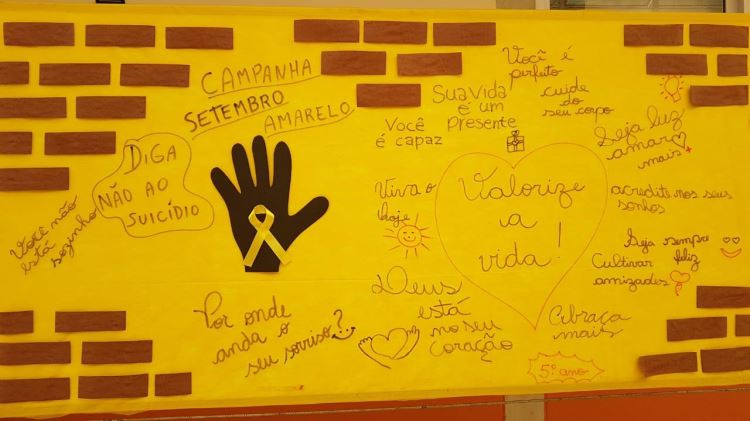 CAMPANHA
SETEMBRO
AMARELO
DIGA
NÃO AO
SUICÍDIO
Você não
está
sozinho
Por onde
anda o
seu sorriso?
Você é
perfeito
Sua vida
é um
presente
cuide
do
seu corpo
Você
é capaz
Seja luz
amar
mais
Viva o
hoje
Valorize
a
vida!
acredite nos seus
sonhos
Seja sempre
feliz
Cultivar
amizades
Deus
está
no seu
coração
Abraça
mais
5º ano